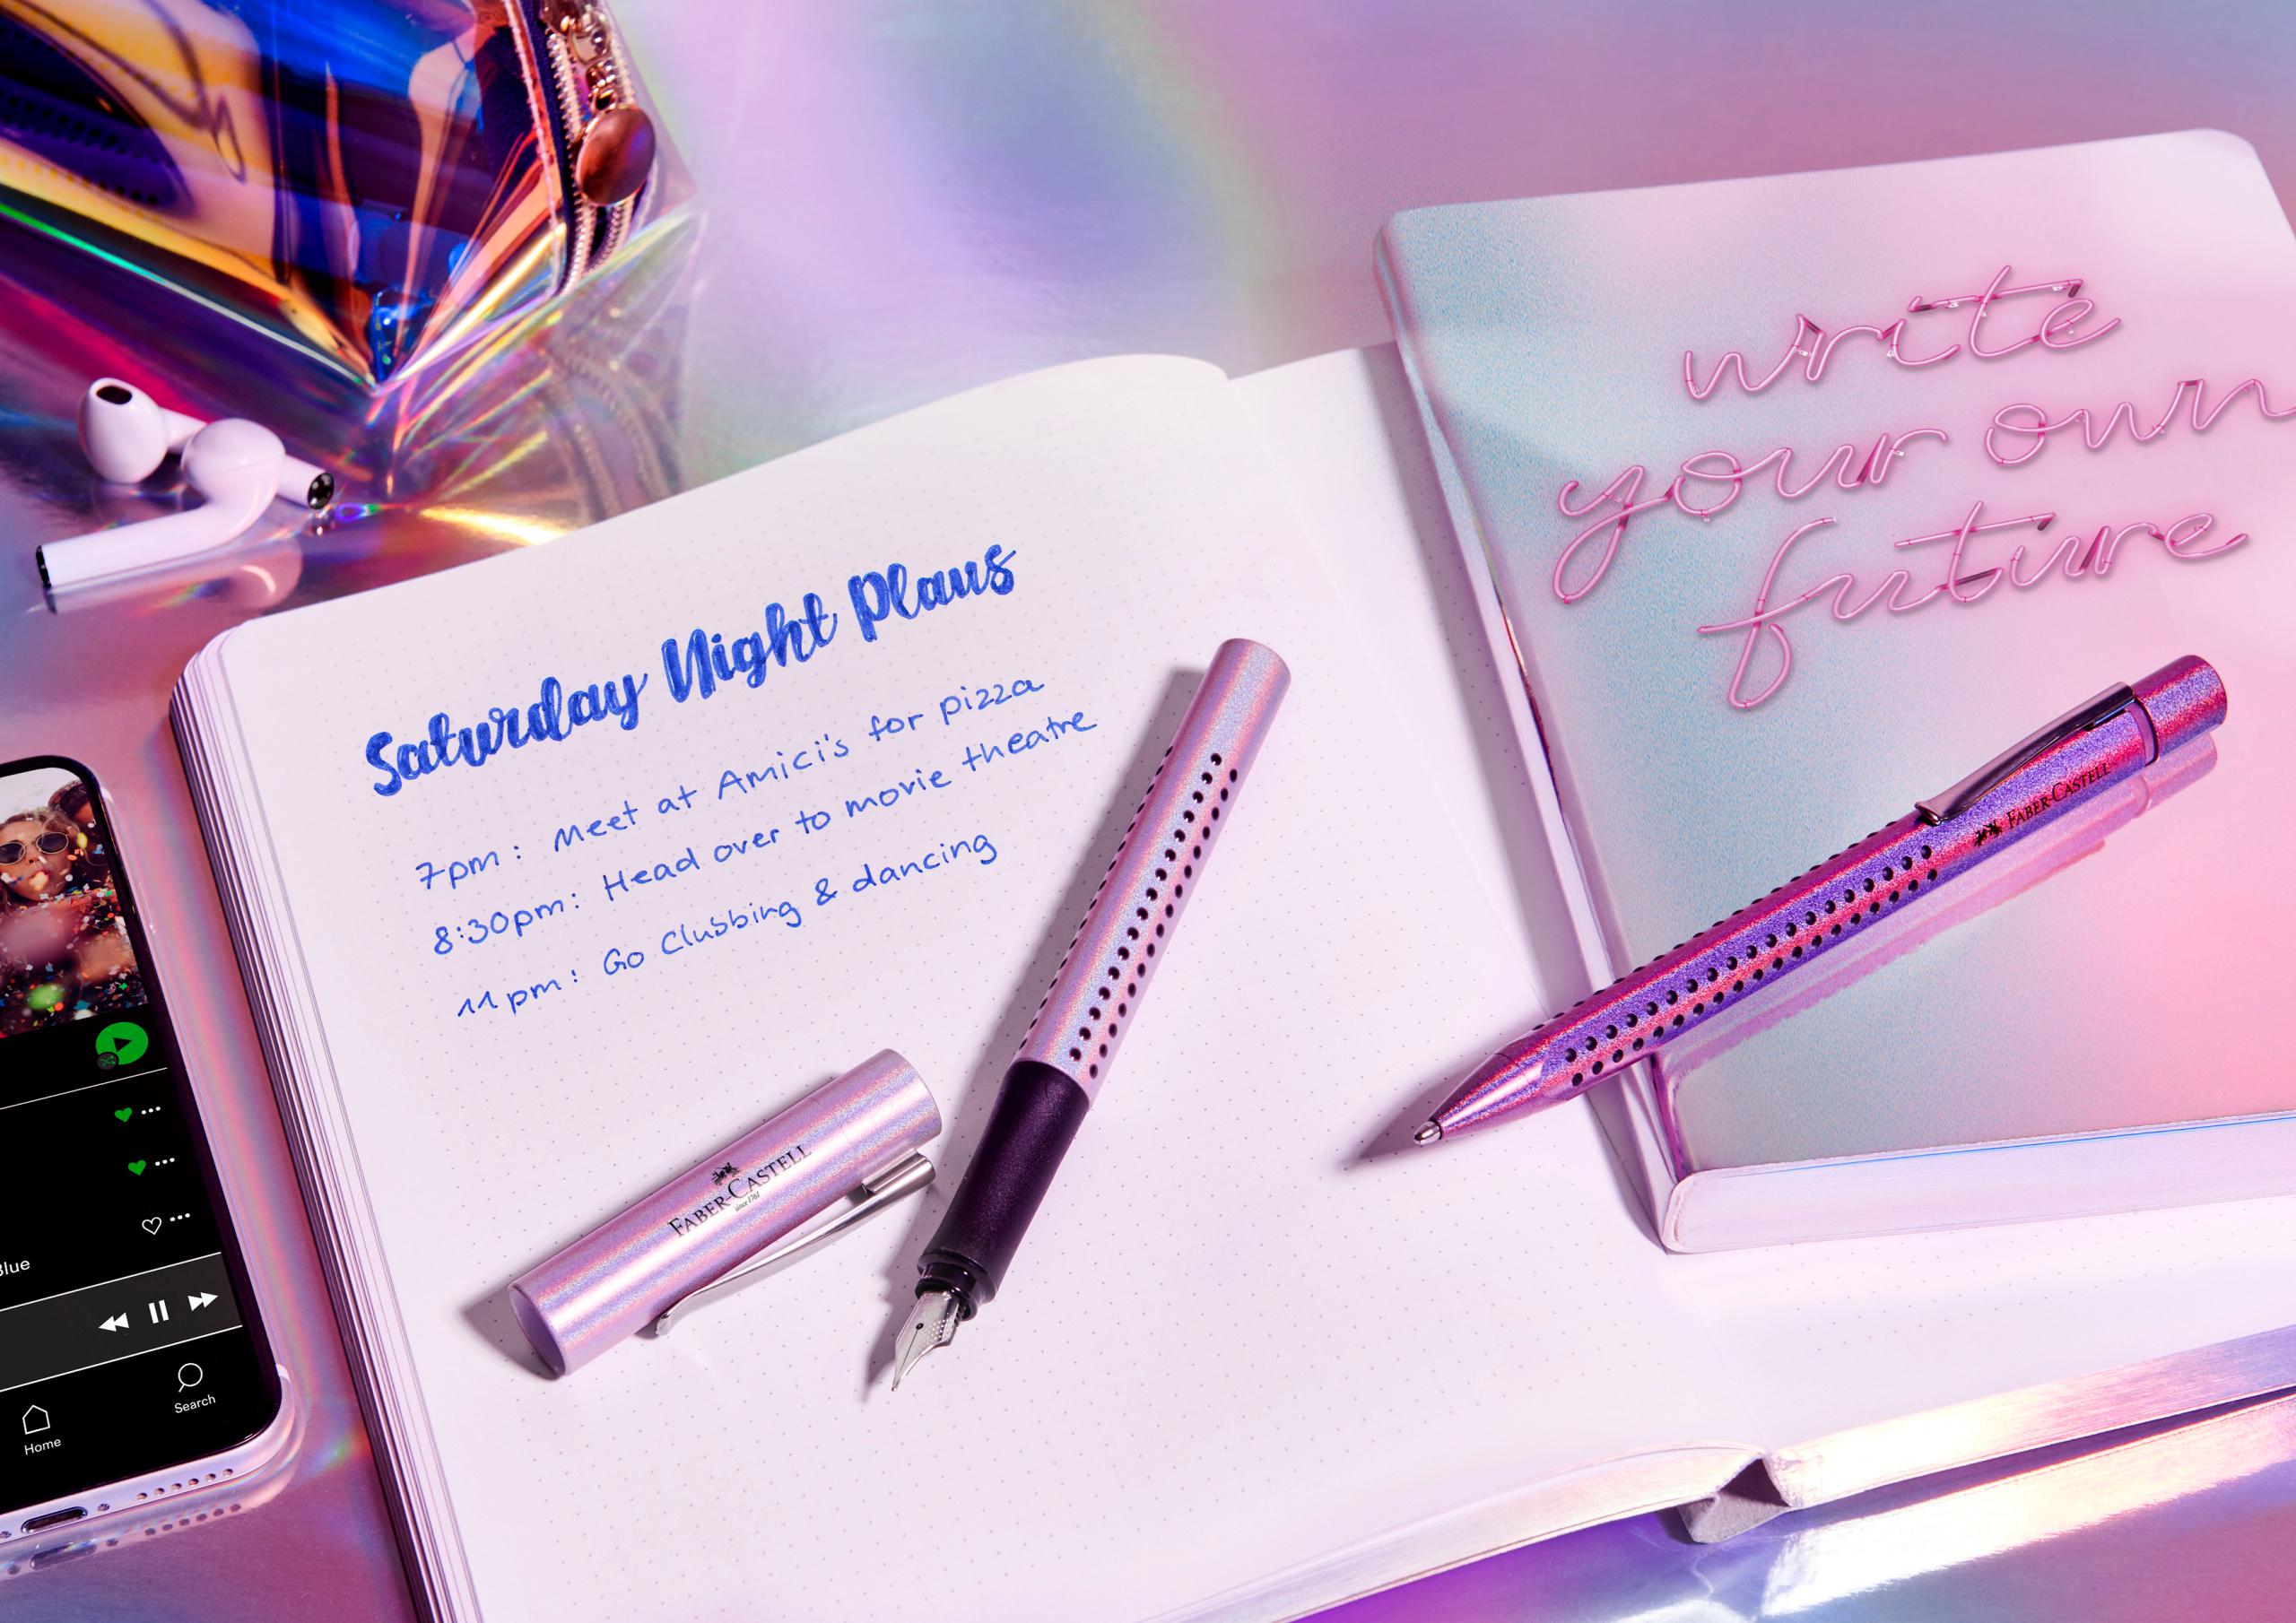 write
your own
future
Saturday Night Plans
7pm: Meet at Amici's for pizza
8:30pm: Head over to movie theatre
11pm: Go Clubbing & dancing
FABER-CASTELL
FABER-CASTELL
since 1761
Blue
Home
Search